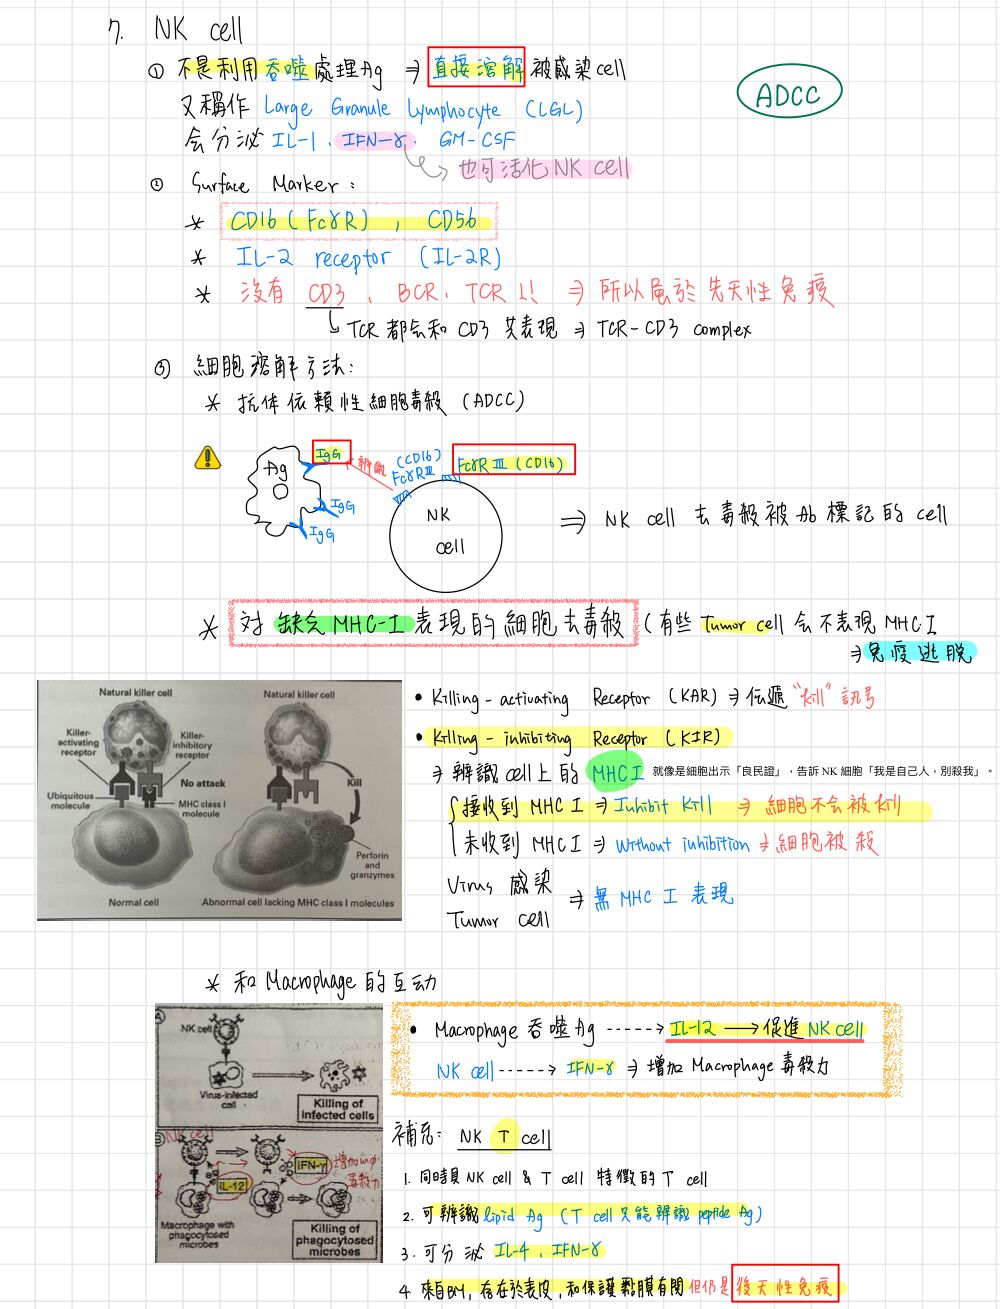 7. NK cell
① 不是利用吞噬處理Ag ⇒ 直接溶解被感染cell
ADCC
又稱作 Large Granule Lymphocyte (LGL)
会分泌 IL-1、IFN-γ、GM-CSF
也可活化NK cell
② Surface Marker:
* CD16 (FcγR), CD56
* IL-2 receptor (IL-2R)
* 沒有 CD3、BCR、TCR !! ⇒ 所以屬於先天性免疫
TCR 都会和 CD3 共表現 ⇒ TCR-CD3 complex
③ 細胞溶解方法:
* 抗体依賴性細胞毒殺 (ADCC)
Ag
IgG
IgG
IgG
辨識
(CD16)
FcγRⅢ
FcγRⅢ (CD16)
NK
cell
⇒ NK cell 去毒殺被Ab標記的cell
* 対 缺乏MHC-I 表現的細胞去毒殺 (有些 Tumor cell 会不表現 MHC I
⇒ 免疫逃脫
Natural killer cell
Natural killer cell
Killer-activating receptor
Killer-inhibitory receptor
No attack
Kill
Ubiquitous molecule
MHC class I molecule
Perforin and granzymes
Normal cell
Abnormal cell lacking MHC class I molecules
• Killing-activating Receptor (KAR) ⇒ 伝遞 "kill" 訊号
• Killing-inhibiting Receptor (KIR)
⇒ 辨識cell上的 MHC I 就像是細胞出示「良民證」，告訴 NK 細胞「我是自己人，別殺我」。
接收到 MHC I ⇒ Inhibit Kill ⇒ 細胞不会被kill
未收到 MHC I ⇒ without inhibition ⇒ 細胞被殺
Virus 感染
Tumor cell
⇒ 無 MHC I 表現
* 和 Macrophage 的互动
A
NK cell
Virus-infected cell
Killing of infected cells
B
NK cell
IFN-γ
增加mφ
毒殺力
IL-12
Macrophage with phagocytosed microbes
Killing of phagocytosed microbes
• Macrophage 吞噬 Ag -----→ IL-12 → 促進 NK cell
NK cell -----→ IFN-γ ⇒ 增加 Macrophage 毒殺力
補充: NK T cell
1. 同時具 NK cell & T cell 特徵的 T cell
2. 可辨識 lipid Ag (T cell 只能辨識 peptide Ag)
3. 可分泌 IL-4、IFN-γ
4. 來自BM, 存在於表皮, 和保護黏膜有関 但仍是 後天性免疫